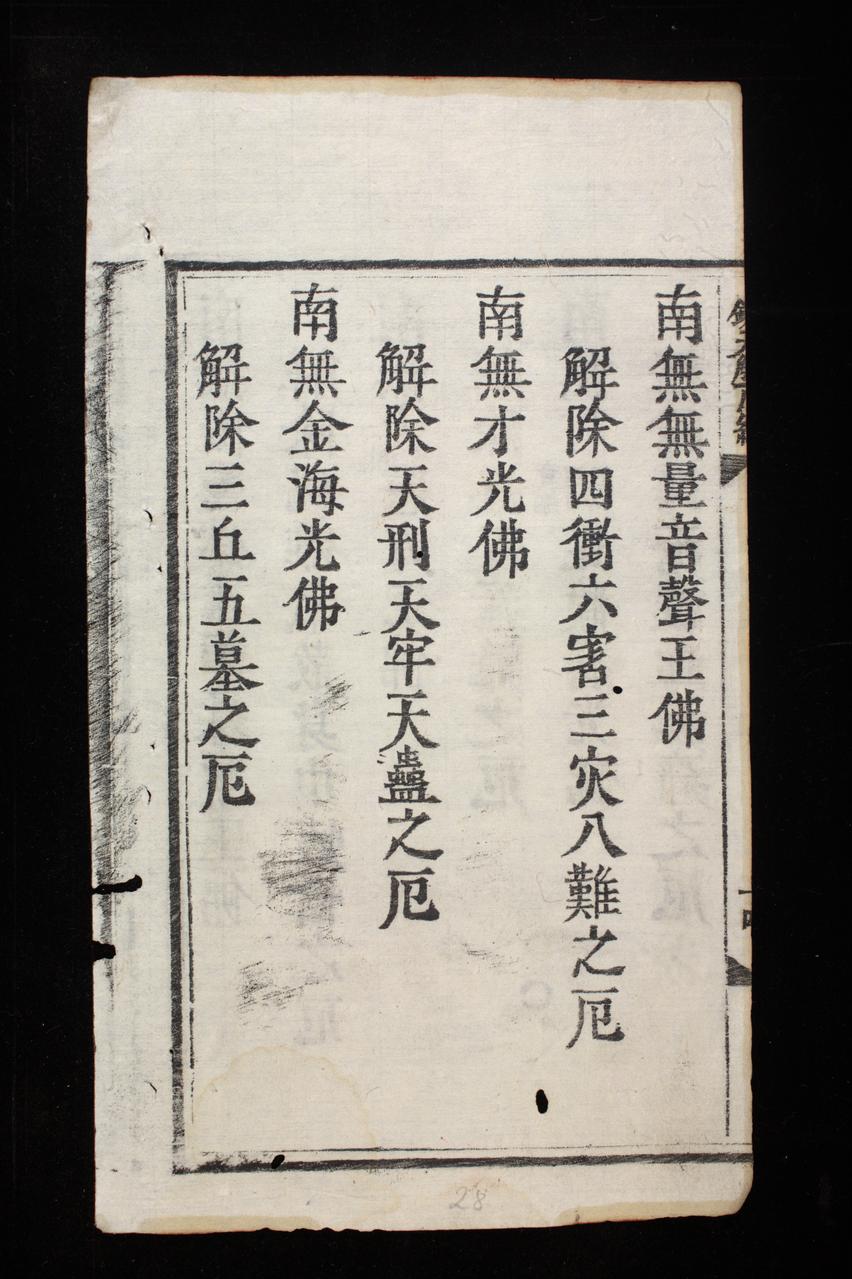 南無無量音聲王佛
解除四衝六害三灾八難之厄
南無才光佛
解除天刑天牢天蠱之厄
南無金海光佛
解除三丘五墓之厄
28